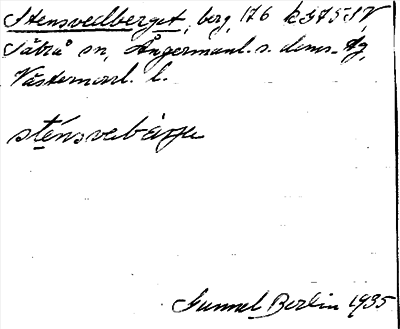 Stensvedberget, berg, 176 kf 75 SV
Säbrå sn, Ångermanl. s. doms. tg,
Västernorrl. l.
sténsvebàrje
Gunnel Berlin 1935